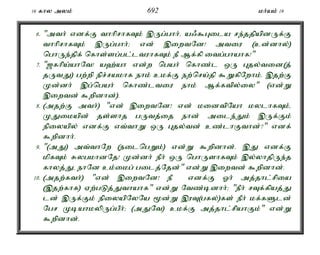 16 கால அலம் 692 மர்யம் 19
6. "அவர் எனக்கு வாரிசாகவும் இருப்பார். யஃகூபுடைய சந்ததியினருக்கு
வாரிசாகவும் இருப்பார்; என் இறைவனே! அவரை (உன்னால்)
பொருந்திக் கொள்ளப்பட்டவராகவும் நீ ஆக்கி வைப்பாயாக!"
7. "ஜகரிய்யாவே! யஹ்யா என்ற பெயர் கொண்ட ஒரு புதல்வனை(த்
தருவது) பற்றி நிச்சயமாக நாம் உமக்கு நற்செய்தி கூறுகிறோம். இதற்கு
முன்னர் இப்பெயர் கொண்டவரை நாம் ஆக்கவில்லை" (என்று
இறைவன் கூறினான்).
8. (அதற்கு அவர்) "என் இறைவனே! என் மனைவியோ மலடாகவும்,
முதுமையின் தள்ளாத பருவத்தை நான் அடைந்தும் இருக்கும்
நிலையில் எனக்கு எவ்வாறு ஒரு புதல்வன் உண்டாகுவான்?" எனக்
கூறினார்.
9. "(அது) அவ்வாறே (நடைபெறும்) என்று கூறினான். இது எனக்கு
மிகவும் சுலபமானதே! முன்னர் நீர் ஒரு பொருளாகவும் இல்லாதிருந்த
காலத்து, நானே உம்மைப் படைத்தேன்" என்று இறைவன் கூறினான்.
10. (அதற்கவர்) "என் இறைவனே! நீ எனக்கு ஓர் அத்தாட்சியை
(இதற்காக) ஏற்படுத்துவாயாக" என்று வேண்டினார்; "நீர் சவுக்கியத்து
டன் இருக்கும் நிலையிலேயே மூன்று இரவு(பகல்)கள் நீர் மக்களுடன்
பேச முடியாமலிருப்பீர்; (அதுவே) உமக்கு அத்தாட்சியாகும்" என்று
கூறினான்.